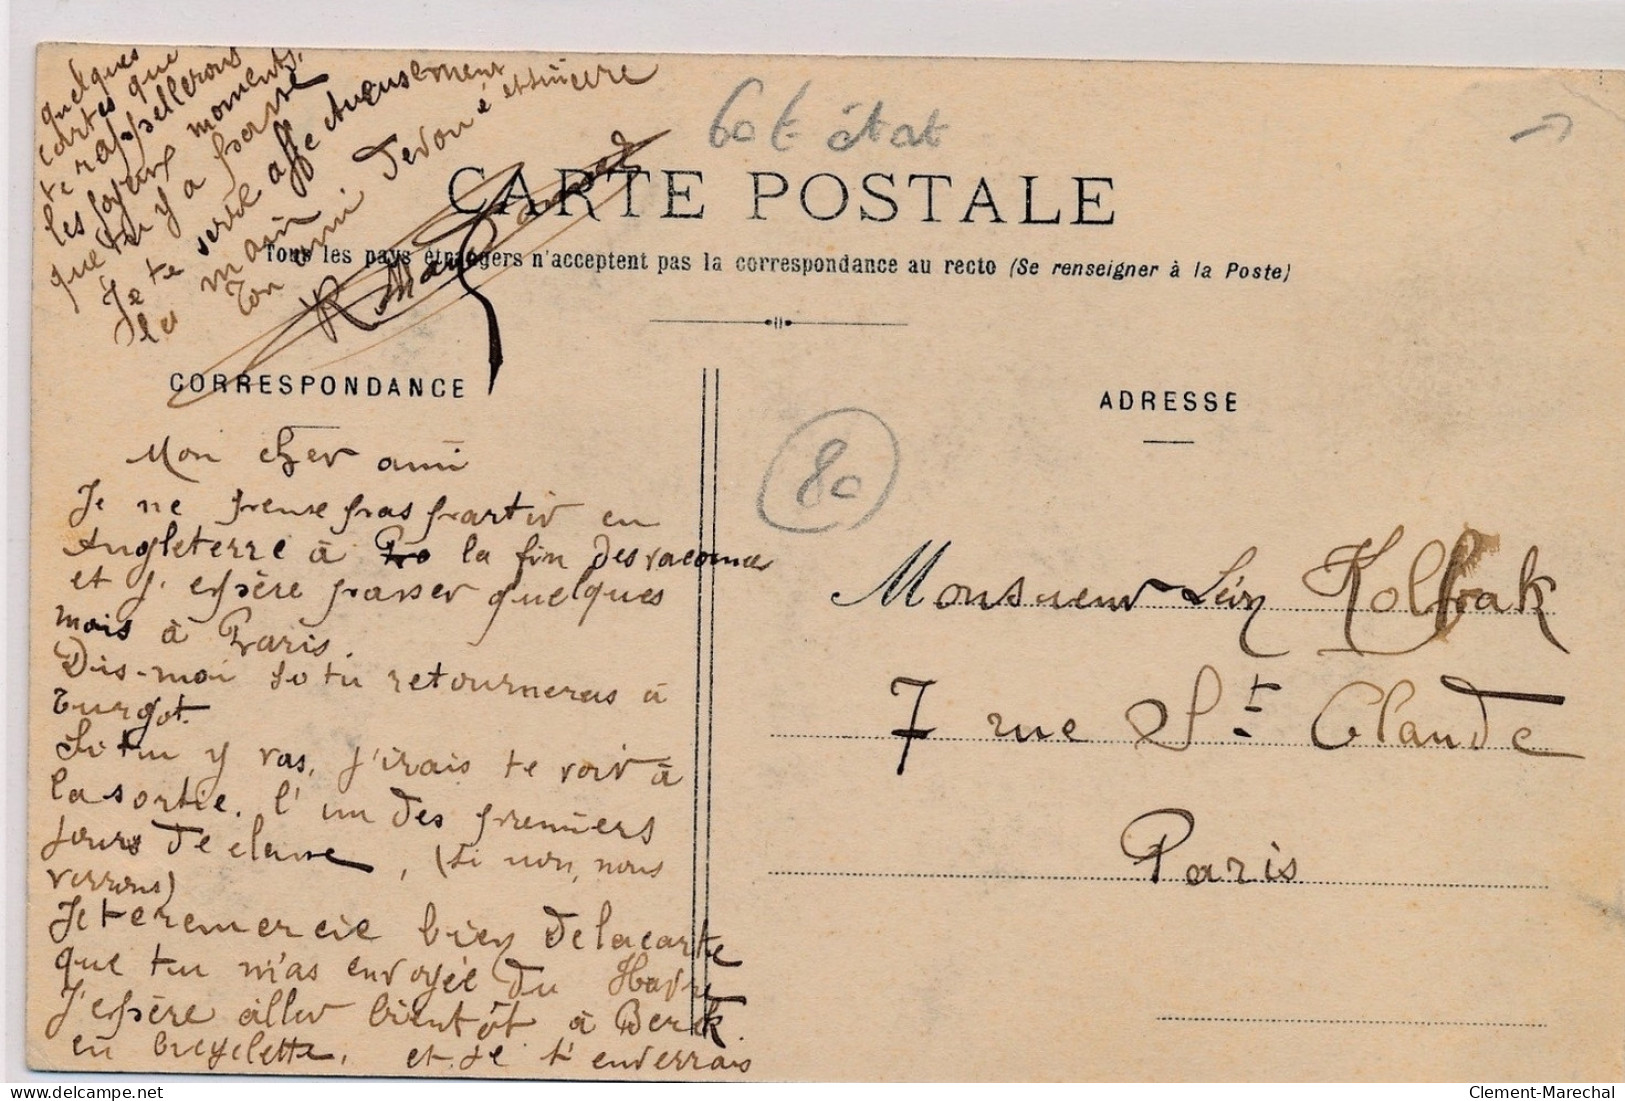 60 € état
CARTE POSTALE
Tous les pays étrangers n'acceptent pas la correspondance au recto (Se renseigner à la Poste)
CORRESPONDANCE
Mon cher ami
Je ne pense pas partir en
Angleterre à la fin des vacances
et j'espère passer quelques
mois à Paris.
Dis-moi si tu retourneras à
Turgot.
Si tu y vas, j'irais te voir à
la sortie. l'un des premiers
jours de classe, (si non, nous
verrons)
Je te remercie bien de la carte
que tu m'as envoyée du Havre
J'espère aller bientôt à Berck
en bicyclette. et je t'enverrais
quelques
cartes que
te rappellerons
les joyeux moments,
que tu y a passé
Je te serre affectueusement
la main
Ton ami dévoué et sincère
R.
ADRESSE
80
Monsieur Léon Kolbak
7 rue St Claude
Paris
Clement-Marechal